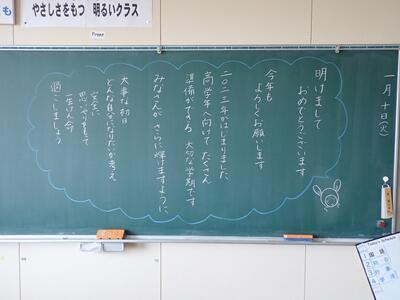 やさしさをもつ 明るいクラス
Front
一月十日(火)
明けまして
おめでとうございます
今年も
よろしくお願いします
二〇二三年がはじまりました。
高学年へ向けて たくさん
準備ができる 大切な学期です
みなさんが さらに輝けますように、
大事な初日
どんな自分になりたいか考え、
安全に
思いやりをもって
一生けん命
過ごしましょう
Today's Schedule
1 国語
2
3
4